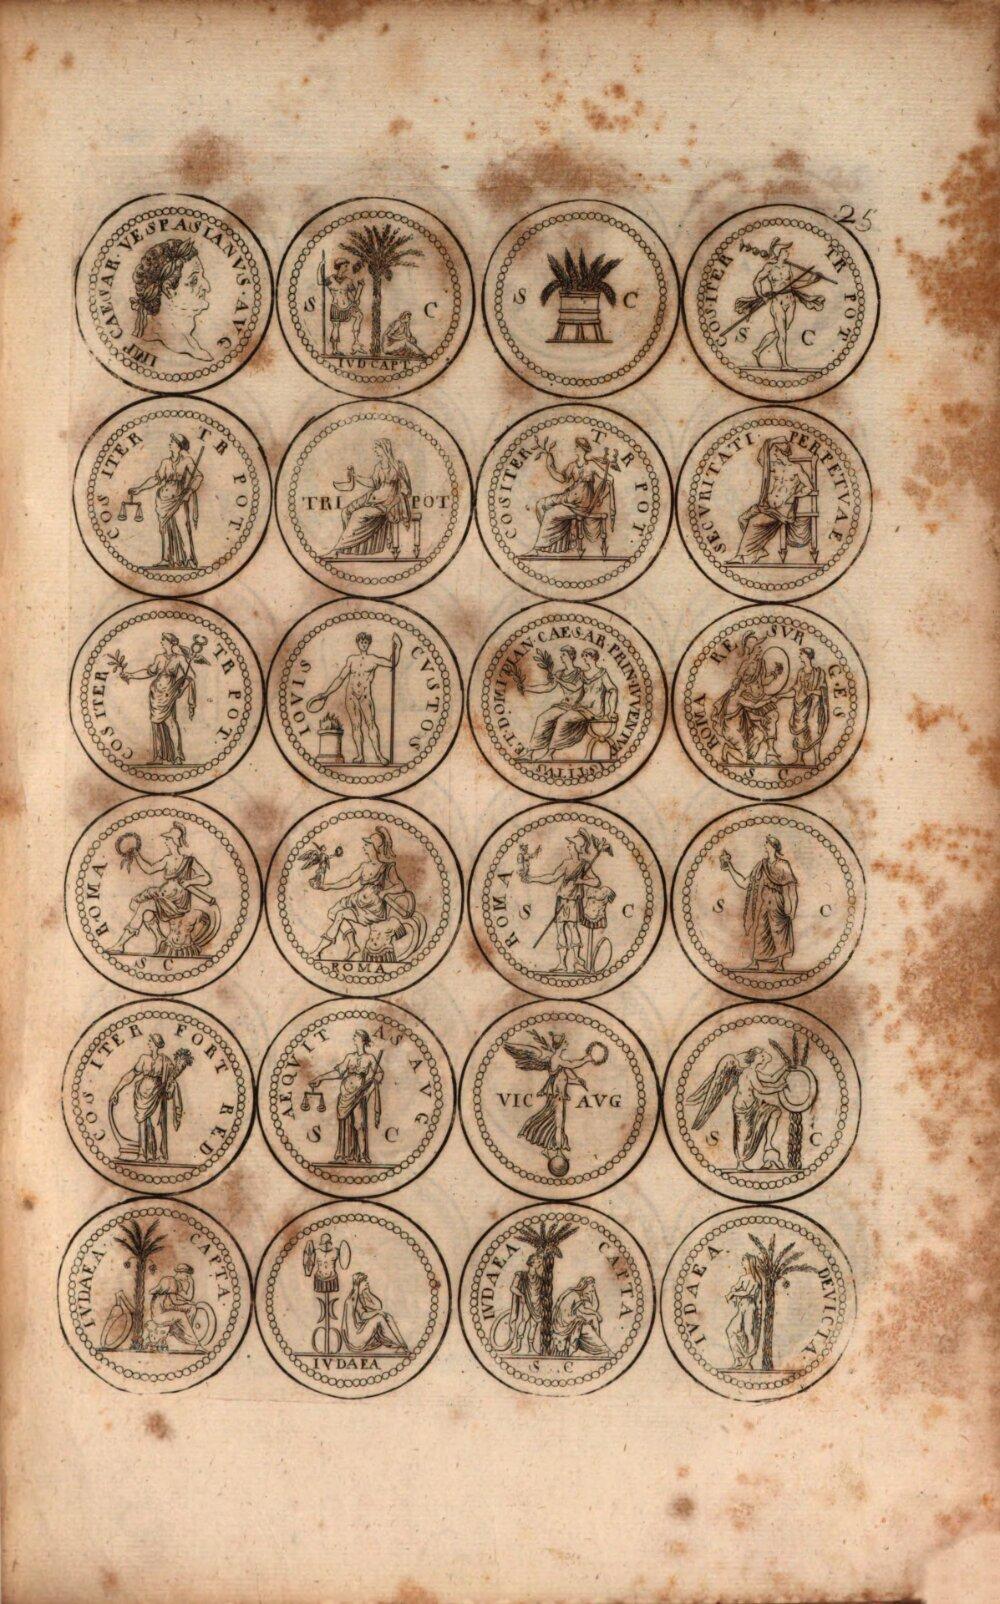 25
IMP CAESAR·VESPASIANVS·AVG
S C
IVD CAPT
S C
COS ITER TR POT
S C
COS ITER TR POT.
TRI POT
COS ITER TR POT.
SECVRITATI PERPETVAE
COS ITER TR POT.
IOVIS CVSTOS
ET·DOMITIAN·CAESAR PRIN·IVENTVT
ROMA RESVRGES
S C
ROMA
S C
ROMA
ROMA
S C
S C
COS·ITER FORT RED
AEQVITAS AVG
S C
VIC AVG
S C
IVDAEA CAPTA·
IVDAEA
IVDAEA CAPTA
S C
IVDAEA DEVICTA